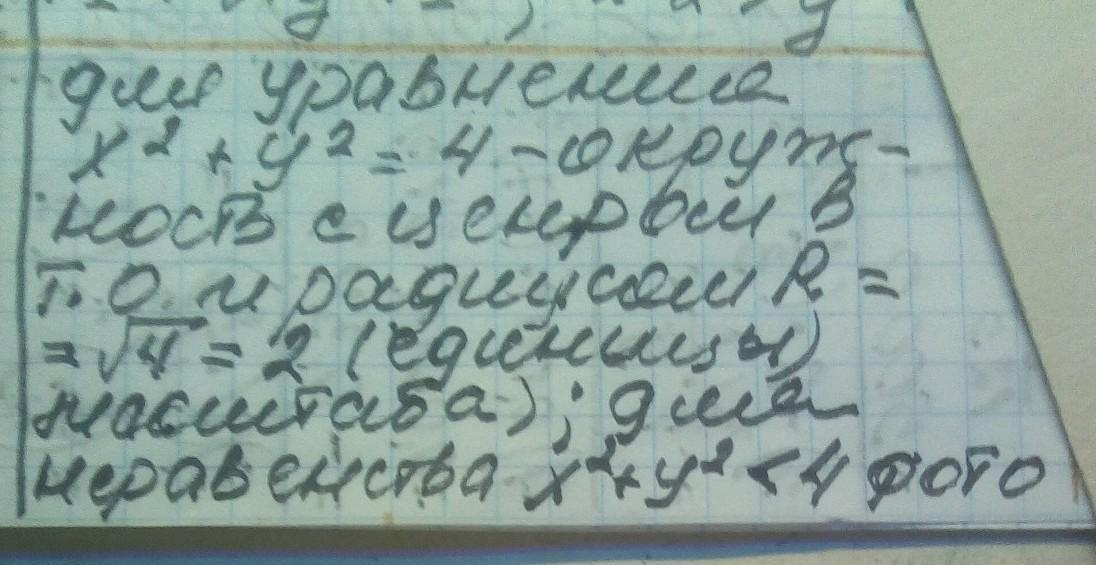 для уравнения
x² + y² = 4 - окруж-
ность с центром в
т. О и радиусом R =
= √4 = 2 (единицы)
масштаба); для
неравенства x² + y² < 4 фото